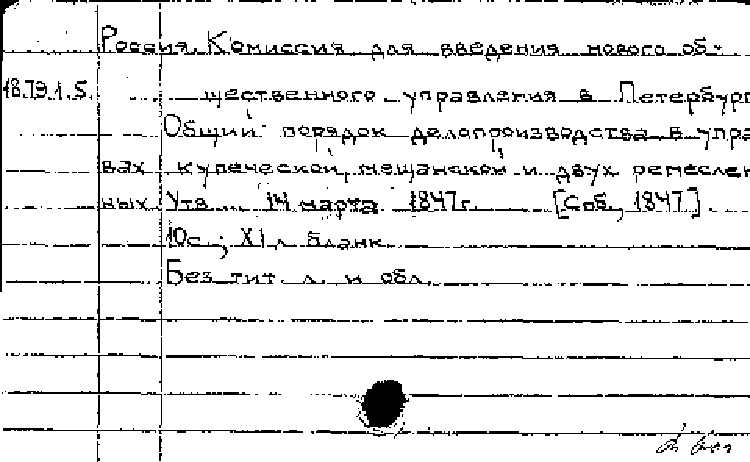 Россия. Комиссия для введения нового об-
18.79.1.5.
щественного управления в Петербург
Общий порядок делопроизводства в упра
вах купеческой, мещанской и двух ремеслен
ных. Утв. 14 марта 1847г. [Спб, 1847].
10с.; XI л. бланк.
Без тит. л. и обл.